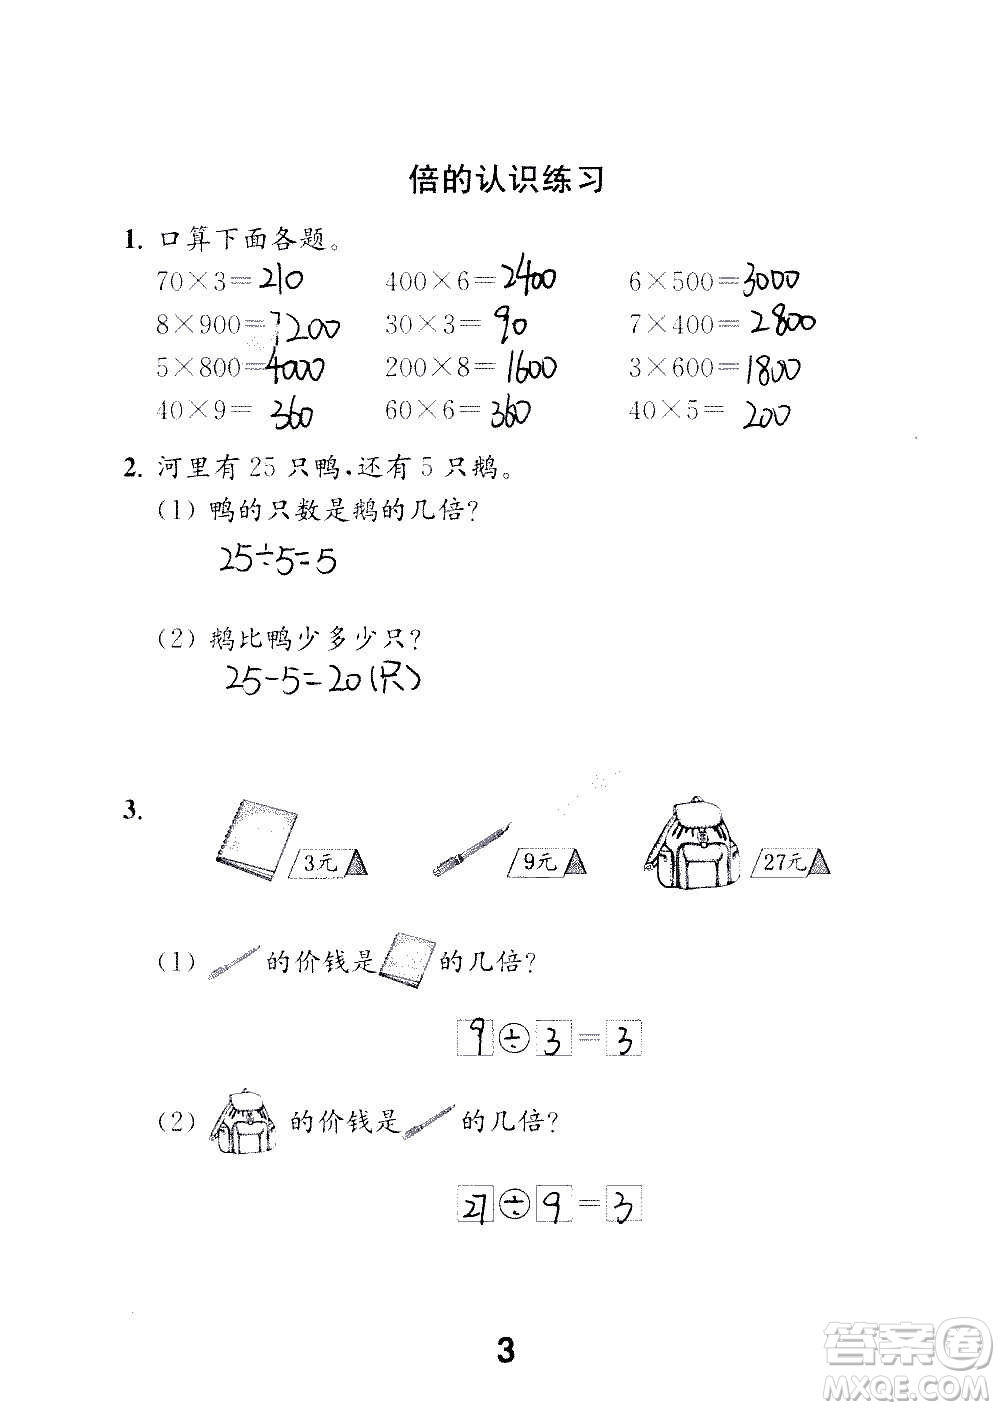 倍的认识练习
1. 口算下面各题。
70×3=210 400×6=2400 6×500=3000
8×900=7200 30×3=90 7×400=2800
5×800=4000 200×8=1600 3×600=1800
40×9=360 60×6=360 40×5=200
2. 河里有 25 只鸭,还有 5 只鹅。
(1) 鸭的只数是鹅的几倍?
25÷5=5
(2) 鹅比鸭少多少只?
25-5=20(只)
3.
3元 9元 27元
(1) 的价钱是 的几倍?
9÷3=3
(2) 的价钱是 的几倍?
27÷9=3
3
答案卷
MXQE.COM